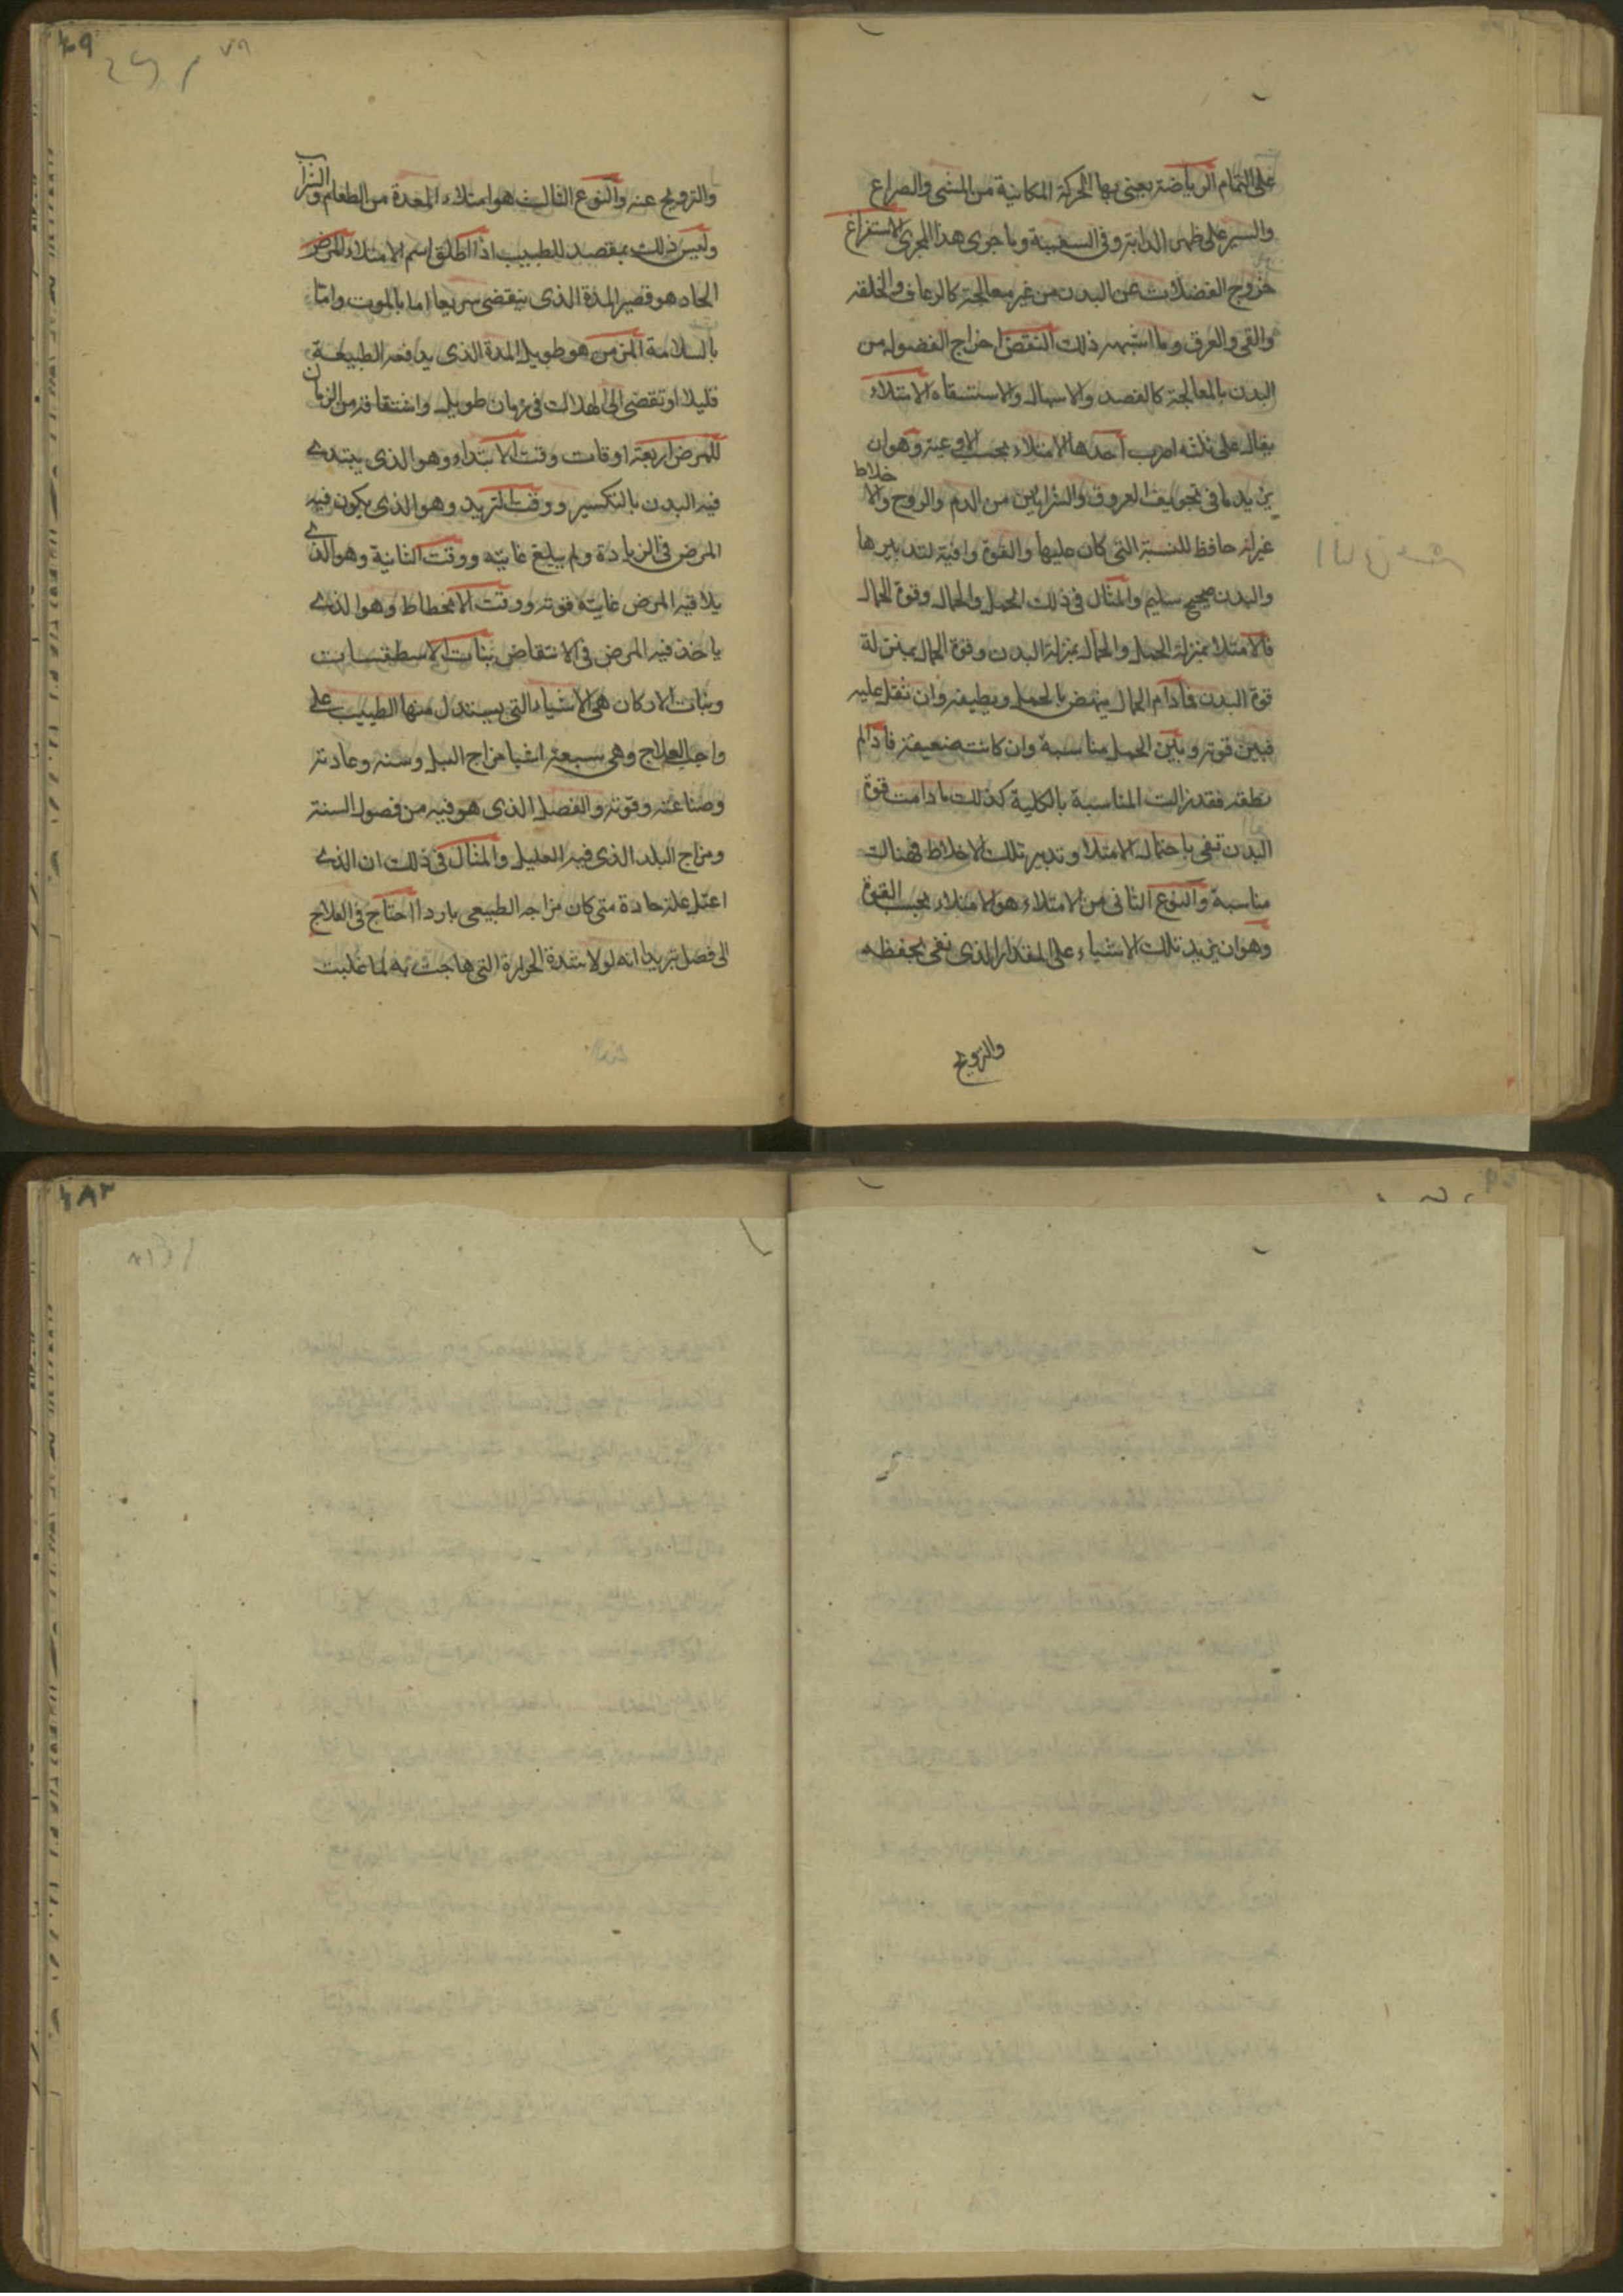 على التمام الرياضة يعنى بها الحركة المكانية من المشى والصراع
والسير على ظهر الدابة وفى السفينة وما جرى هذا المجرى الاستفراغ
خروج الفضلات عن البدن من غير معالجة كالرعاف والخلفه
والقى والعرق وما اشبه ذلك النقض اخراج الفضول من
البدن بالمعالجة كالفصد والاسهال والاستسقاء الامتلاء
يقال على ثلثه اضرب احدها الامتلاء بحسب الاوعية وهو ان
يزيد ما فى تجويف العروق والشرايين من الدم والروح والاخلاط
غير انه حافظ للنسبة التى كان عليها والقوة وافية بتدبيرها
والبدن صحيح سليم والمثال فى ذلك الحمل والحمال وقوة الحمال
فالامتلا بمنزلة الحمل والحمال بمنزلة البدن وقوة الحمال بمنزلة
قوة البدن فما دام الحمال ينهض بالحمل ويطيقه وان ثقل عليه
فبين قوته وبين الحمل مناسبة وان كانت ضعيفة فاذا لم
يطقه فقد زالت المناسبة بالكلية كذلك ما دامت قوة
البدن تفى باحتمال الامتلا وتدبير تلك الاخلاط فهناك
مناسبة والنوع الثانى من الامتلاء هو الامتلاء بحسب القوة
وهو ان يزيد تلك الاشياء على المقدار الذى تفى بحفظه
والترويح
والترويح عنه والنوع الثالث هو امتلاء المعدة من الطعام والشراب
وليس ذلك بمقصد للطبيب اذا اطلق اسم الامتلاء المرض
الحاد هو قصير المدة الذى ينقضى سريعا اما بالموت واما
بالسلامة المزمن هو طويل المدة الذى يدافعه الطبيعة
قليلا او تقضى الى الهلاك فى زمان طويل واشتقاقه من الزمان
للمرض اربعة اوقات وقت الابتداء وهو الذى يبتدى
فيه البدن بالتكسير ووقت التزيد وهو الذى يكون فيه
المرض فى الزيادة ولم يبلغ غايته ووقت الثانية وهو الذى
يلاقيه المرض غاية قوته ووقت الانحطاط وهو الذى
ياخذ فيه المرض فى الانتقاض بنات الاسطقسات
وبنات الاركان هى الاشياء التى يستدل منها الطبيب على
واجب العلاج وهى سبعة اشيا مزاج البدن وسنه وعادته
وصناعته وقوته والفصل الذى هو فيه من فصول السنة
ومزاج البلد الذى فيه العليل والمثال فى ذلك ان الذى
اعتل علة حادة متى كان مزاجه الطبيعى باردا احتاج فى العلاج
الى فضل تبريد انه لولا شدة الحرارة التى هاجت به لما غلبت